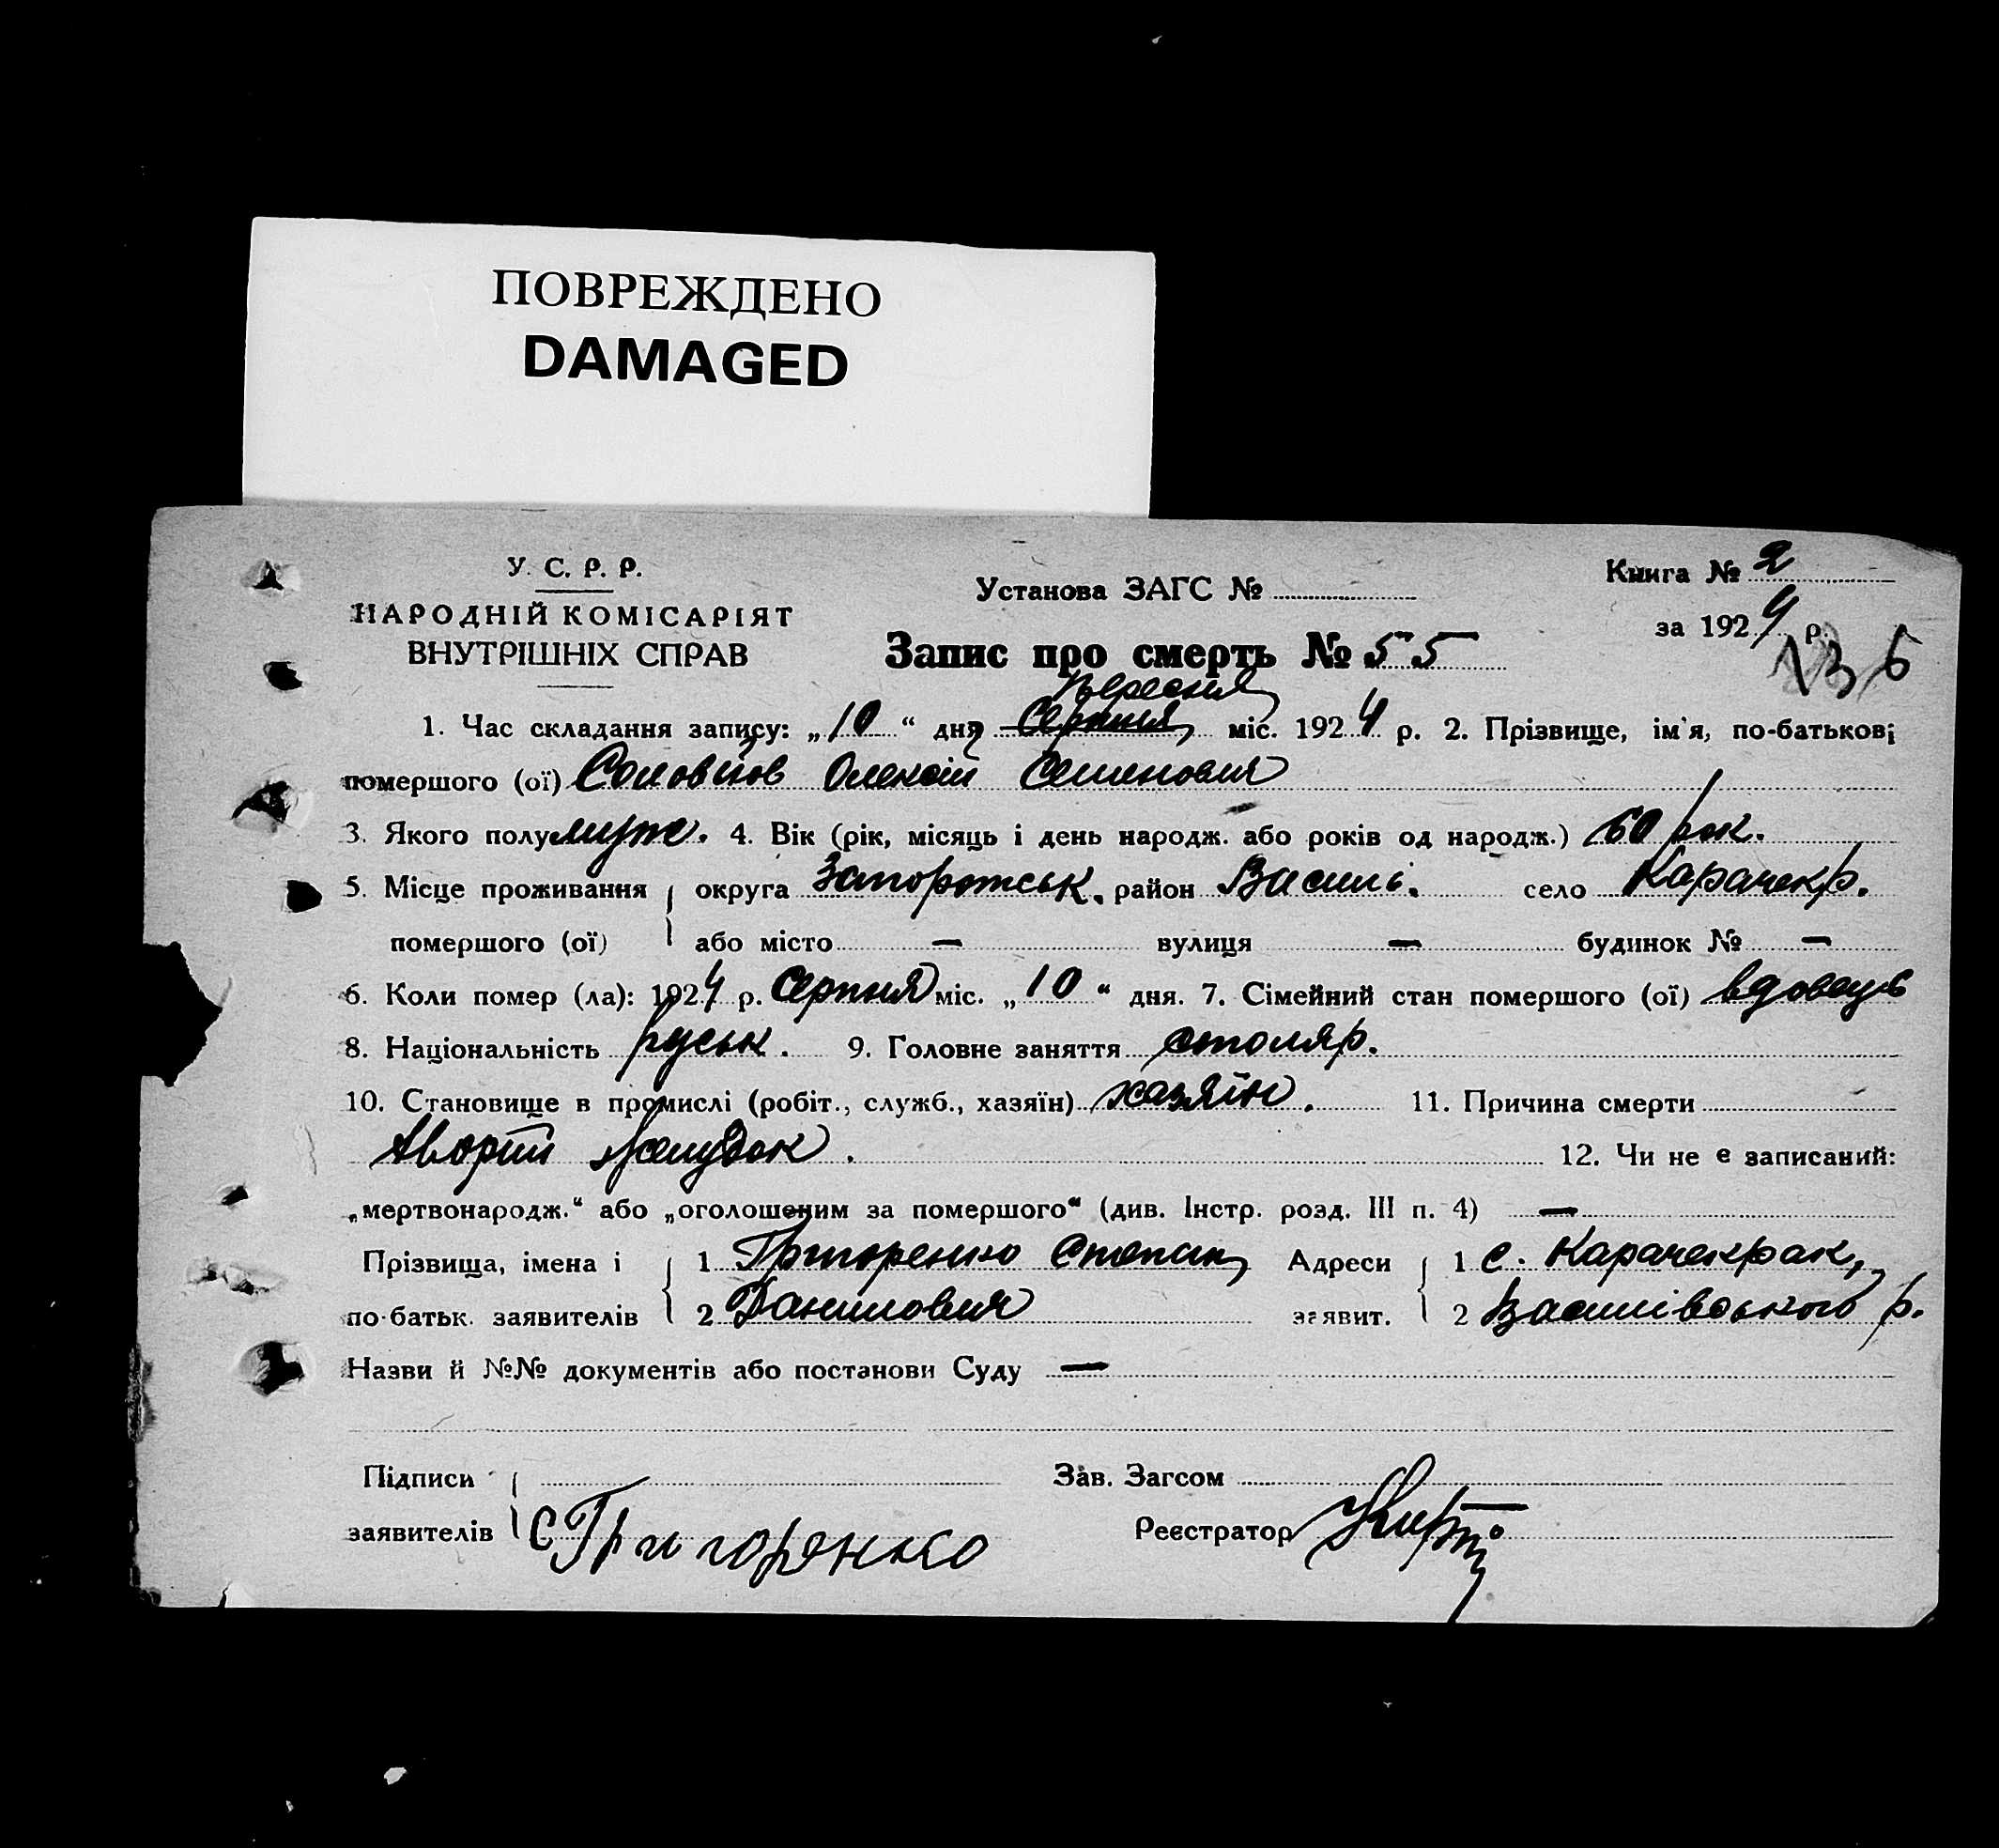 ПОВРЕЖДЕНО
DAMAGED
У. С. Р. Р.
НАРОДНІЙ КОМІСАРІЯТ
ВНУТРІШНІХ СПРАВ
Установа ЗАГС №
Книга № 2
за 1924 р.
Запис про смерть № 55
136
Вересня
1. Час складання запису: „10“ дня Серпня міс. 1924 р. 2. Прізвище, ім'я, по-батькові
помершого (ої) Соловйов Олексій Семенович
3. Якого полу муж. 4. Вік (рік, місяць і день народж. або років од народж.) 60 рок.
5. Місце проживання округа Запоріжськ. район Василі. село Карачекр.
помершого (ої) або місто — вулиця — будинок № —
6. Коли помер (ла): 1924 р. Серпня міс. „10“ дня. 7. Сімейний стан помершого (ої) вдовець
8. Національність руськ. 9. Головне заняття столяр.
10. Становище в промислі (робіт., служб., хазяїн) хазяїн. 11. Причина смерти
хворий желудок.
12. Чи не є записаний:
„мертвонародж.“ або „оголошеним за помершого“ (див. Інстр. розд. III п. 4) —
Прізвища, імена і 1 Григоренко Степан Адреси 1 с. Карачекрак,
по-батьк. заявителів 2 Данилович заявит. 2 Василівського р.
Назви й №№ документів або постанови Суду —
Підписи Зав. Загсом
заявителів С Григоренко Реєстратор